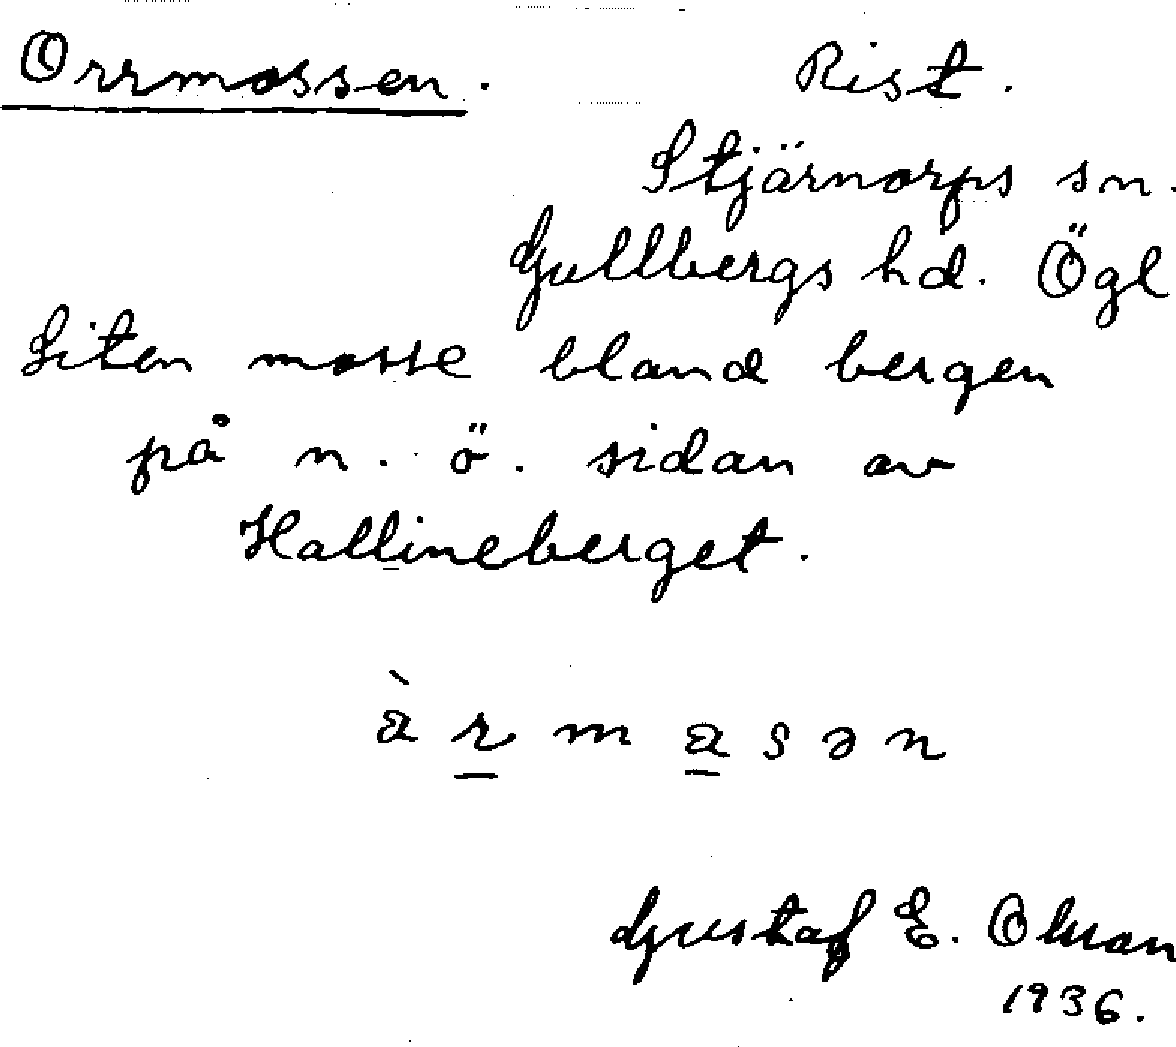 Orrmossen. Rist.
Stjärnorps sn.
Gullbergs hd. Ögl
Liten mosse bland bergen
på n. ö. sidan av
Hallineberget.
Gustaf E. Olsson
1936.